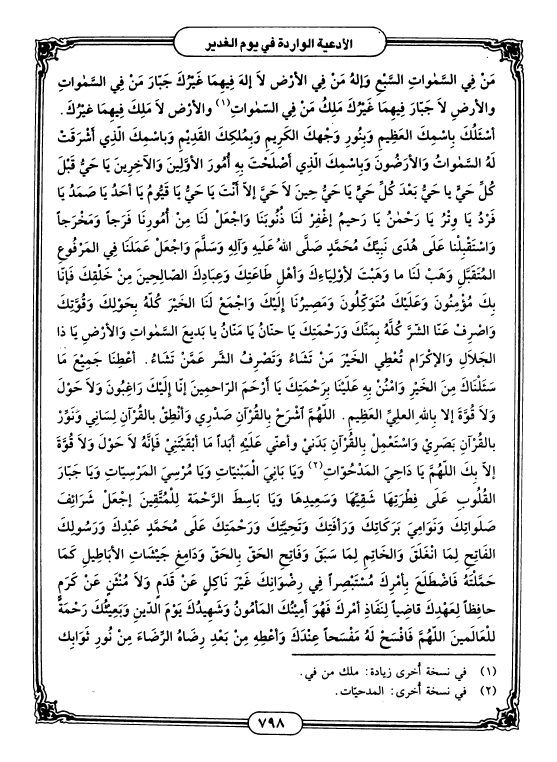 الأدعية الواردة في يوم الغدير
مَنْ فِي السَّمٰواتِ السَّبْعِ وَإِلٰهُ مَنْ فِي الأَرْضِ لاَ إِلهَ فِيهِما غَيْرُكَ جَبّارُ مَنْ فِي السَّمٰواتِ
والأرضِ لاَ جَبّارَ فِيهِما غَيْرُكَ مَلِكُ مَنْ فِي السَّمٰواتِ(١) والأَرْضِ لاَ مَلِكَ فِيهِما غَيْرُكَ .
أَسْئَلُكَ بِاسْمِكَ العَظِيمِ وَبِنُورِ وَجْهِكَ الكَرِيمِ وَبِمُلكِكَ القَدِيْمِ وَبِاسْمِكَ الَّذِي أَشْرَقَتْ
لَهُ السَّمٰواتُ وَالأَرَضُونَ وَبِاسْمِكَ الَّذِي أَصْلَحْتَ بِهِ أُمُورَ الأَوَّلِينَ وَالآخِرِينَ يَا حَيُّ قَبْلَ
كُلِّ حَيٍّ يا حَيُّ بَعْدَ كُلِّ حَيٍّ يَا حَيُّ حِينَ لاَ حَيَّ إلاّ أَنْتَ يَا حَيُّ يَا قَيُّومُ يَا أَحَدُ يَا صَمَدُ يَا
فَرْدُ يَا وِتْرُ يَا رَحْمٰنُ يَا رَحيمُ إِغْفِرْ لَنَا ذُنُوبَنَا وَاجْعَلْ لَنَا مِنْ أُمُورِنَا فَرَجاً وَمَخْرَجاً
وَاسْتَقْبِلْنا عَلَى هُدَى نَبِيِّكَ مُحَمَّدٍ صَلَّى اللهُ عَلَيْهِ وَآلِهِ وَسَلَّمَ وَاجْعَلْ عَمَلَنَا فِي المَرْفُوعِ
المُتَقَبَّلِ وَهَبْ لَنَا ما وَهَبْتَ لأَوْلِيَاءِكَ وَأَهْلِ طَاعَتِكَ وَعِبادِكَ الصَالِحِينَ مِنْ خَلْقِكَ فَإِنّا
بِكَ مُؤْمِنُونَ وَعَلَيْكَ مُتَوَكِلُونَ وَمَصِيرُنَا إِلَيْكَ وَاجْمَعْ لَنَا الخَيْرَ كُلَّهُ بِحَوْلِكَ وَقُوَّتِكَ
وَاصْرِفْ عَنّا الشَرَّ كُلَّهُ بِمَنِّكَ وَرَحْمَتِكَ يَا حنّانُ يَا مَنّانُ يا بَدِيعَ السَمٰواتِ وَالأَرْضِ يَا ذا
الجَلاَلِ وَالإِكْرامِ تُعْطِي الخَيْرَ مَنْ تَشَاءُ وَتَصْرِفُ الشَر عَمَّنْ تَشَاءُ. أَعْطِنا جَمِيعَ مَا
سَئَلْنَاكَ مِنَ الخَيْرِ وَامْنُنْ بِهِ عَلَيْنا بِرَحْمَتِكَ يَا أَرْحَمَ الرّاحِمِينَ إِنّا إِلَيْكَ رَاغِبُونَ وَلاَ حَوْلَ
وَلاَ قُوَّةَ إلا بِاللهِ العلِيِّ العَظِيمِ. اللَّهُمَّ أَشْرَحْ بِالقُرْآنِ صَدْرِي وَأَنْطِقْ بِالقُرْآنِ لِسَانِي وَنَوِّرْ
بالقُرْآنِ بَصَرِيْ وَاسْتَعْمِلْ بِالْقُرْآنِ بَدَنِيْ وَأَعنِّي عَلَيْهِ أَبَداً مَا أَبْقَيْتَنِيْ فَإِنَّهُ لاَ حَوْلَ وَلاَ قُوَّةَ
إلاَّ بِكَ اللّهُمَّ يَا دَاحِيَ المَدْحُوّاتِ(٢) وَيَا بَانِيَ الْمَبْنِيّاتِ وَيَا مُرْسِيَ المَرْسِيّاتِ وَيَا جَبّارَ
القُلُوبِ عَلَى فِطْرَتِهَا شَقِيِّهَا وَسَعِيدِهَا وَيَا بَاسِطَ الرَّحْمَةِ لِلْمُتَّقِينَ إِجْعَلْ شَرَائِفَ
صَلَواتِكَ وَنَوَامِيَ بَرَكَاتِكَ وَرَأفَتِكَ وَتَحِيَّتِكَ وَرَحْمَتِكَ عَلَى مُحَمَّدٍ عَبْدِكَ وَرَسُولِكَ
الفَاتِحِ لِمَا انْغَلَقَ وَالخَاتِمِ لِمَا سَبَقَ وَفَاتِحِ الحَقِّ بِالحَقِّ وَدَامِغِ جَيْشَاتِ الأبَاطِيلِ كَمَا
حَمَّلْتَهُ فَاضْطَلَعَ بِأَمْرِكَ مُسْتَبْصِراً فِي رِضْوَانِكَ غَيْرَ نَاكِلٍ عَنْ قَدَمٍ وَلاَ مُنْثَنٍ عَنْ كَرَمٍ
حافِظاً لِعَهْدِكَ قاضِياً لِنَفَاذِ أَمرِكَ فَهُوَ أَمِيْنُكَ المَأمُونُ وَشَهِيدُكَ يَوْمَ الدّينِ وَبَعِيثُكَ رَحْمَةً
لِلعَالَمينَ اللَّهُمَّ فَافْسَحْ لَهُ مَفْسَحاً عِنْدَكَ وَأَعْطِهِ مِنْ بَعْدِ رِضَاهُ الرِّضَاءَ مِنْ نُورِ ثَوَابِك
(١) في نسخة أخرى زيادة: ملك من في.
(٢) في نسخة أخرى: المدحيّات.
٧٩٨